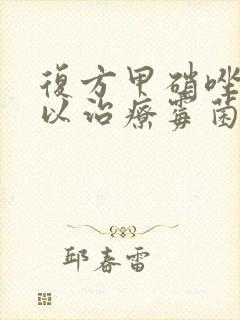 復方甲硝唑
以治療霉菌
邱春雷